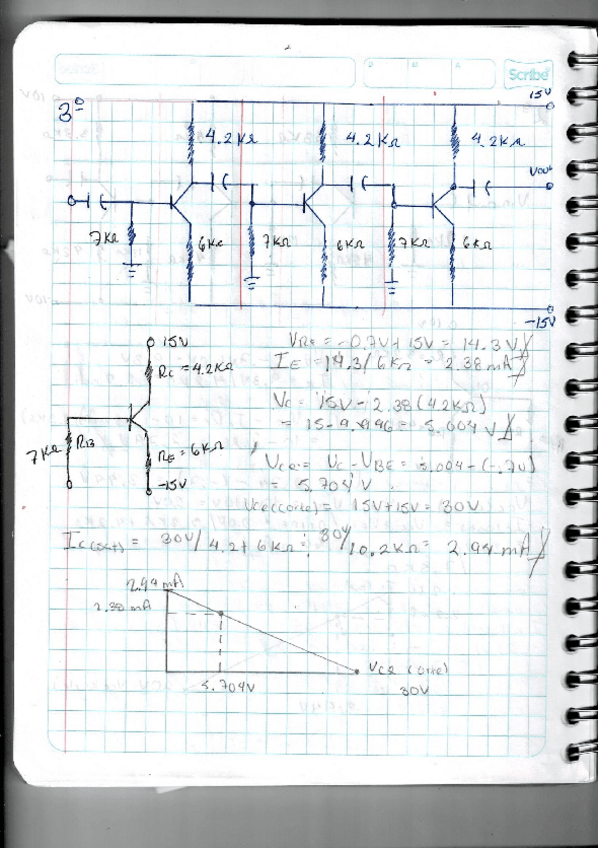 Scribe
D M A
15V
3º
4.2KΩ 4.2KΩ 4.2KΩ
Vout
7KΩ 6KΩ 7KΩ 6KΩ 7KΩ 6KΩ
-15V
15V
RC = 4.2KΩ
7KΩ RB
RE = 6KΩ
-15V
VRE = -0.7V+15V = 14.3V
IE = 14.3/6KΩ = 2.38mA
VC = 15V-2.38(4.2KΩ)
= 15-9.996= 5.004 V
VCE = VC - VBE = 5.004-(-.7V)
= 5.704 V
VCE(corte) = 15V+15V = 30V
IC(sat) = 30V/4.2+6KΩ = 30V/10.2KΩ = 2.94mA
2.94 mA
2.38 mA
VCE (corte)
5.704V 30V